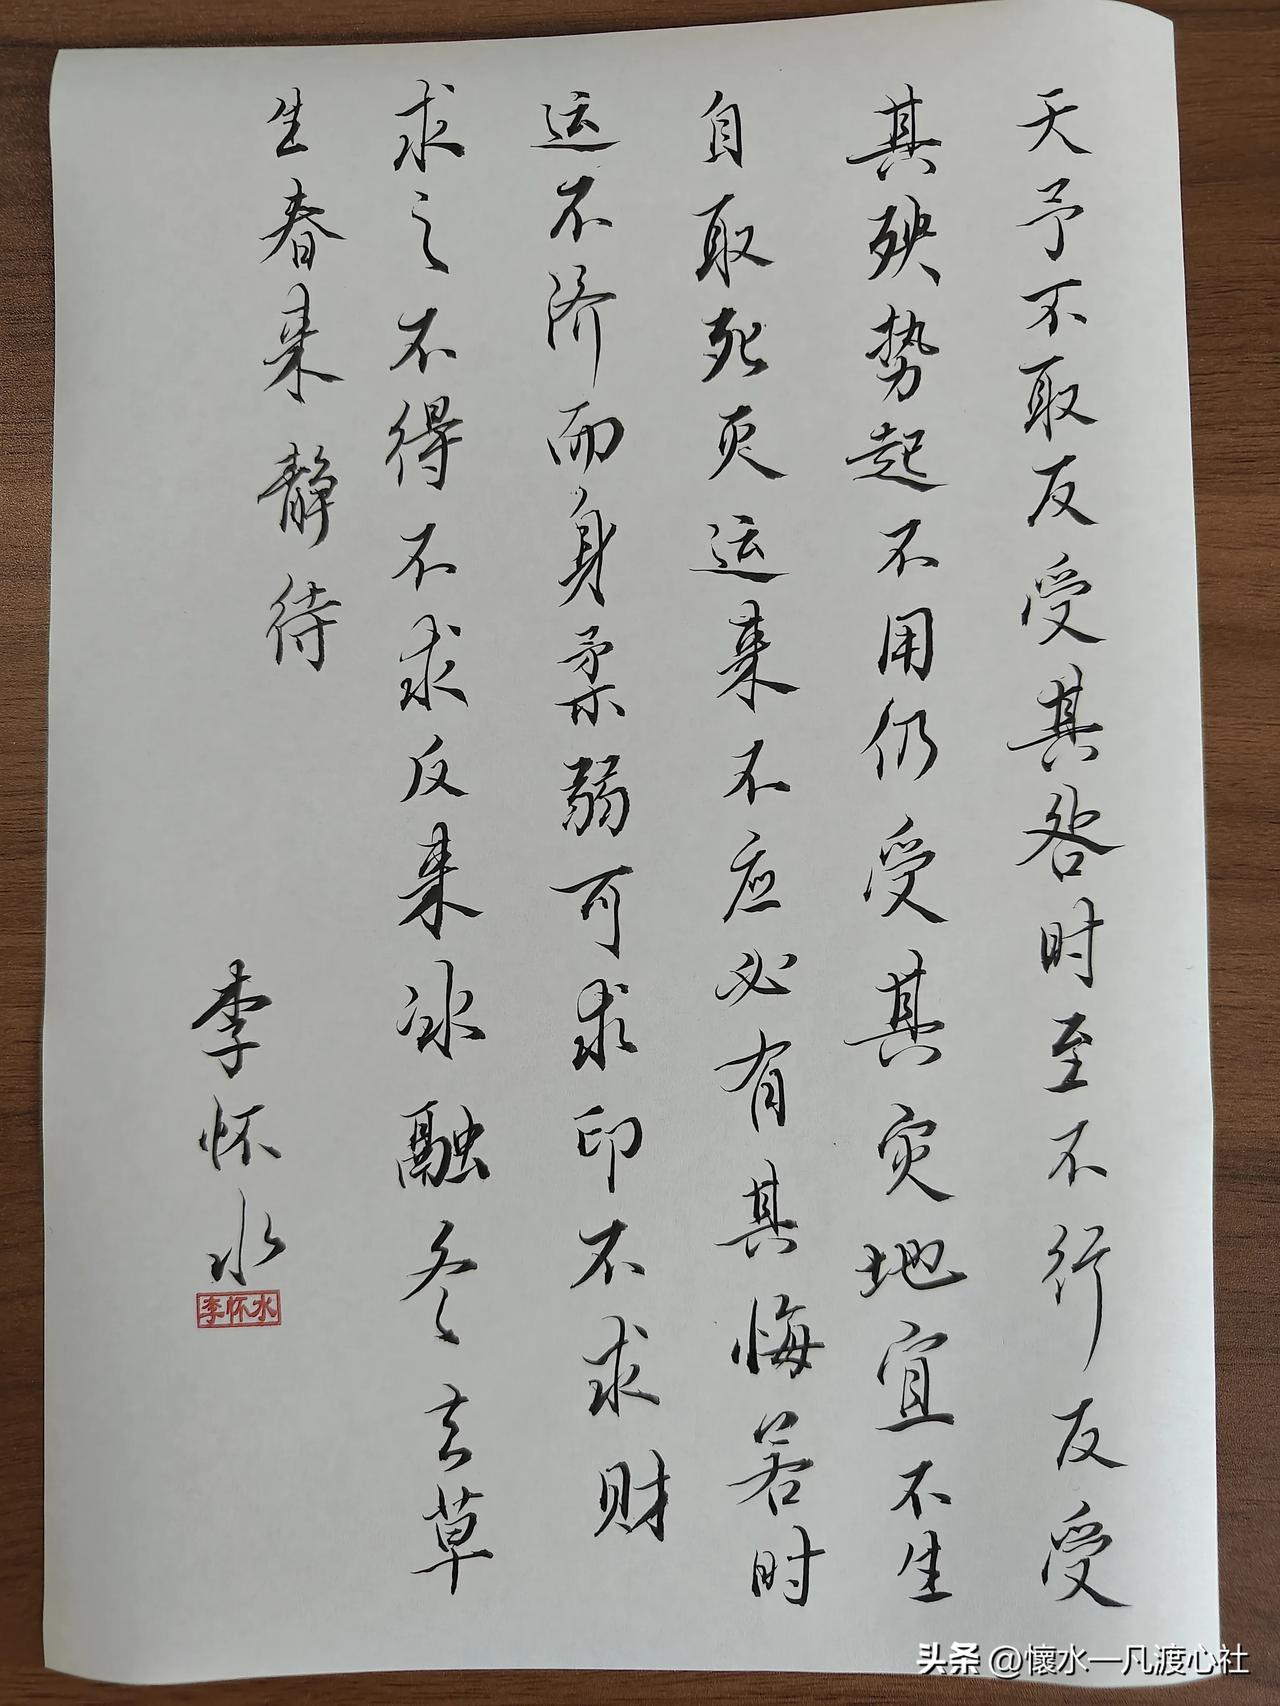 天予不取反受其咎时至不行反受
其殃势起不用仍受其灾地宜不生
自取死灭运来不应必有其悔若时
运不济而身柔弱可求印不求财
求之不得不求反来冰融冬去草
生春来静待
李怀水
李怀水
头条@懷水一凡渡心社